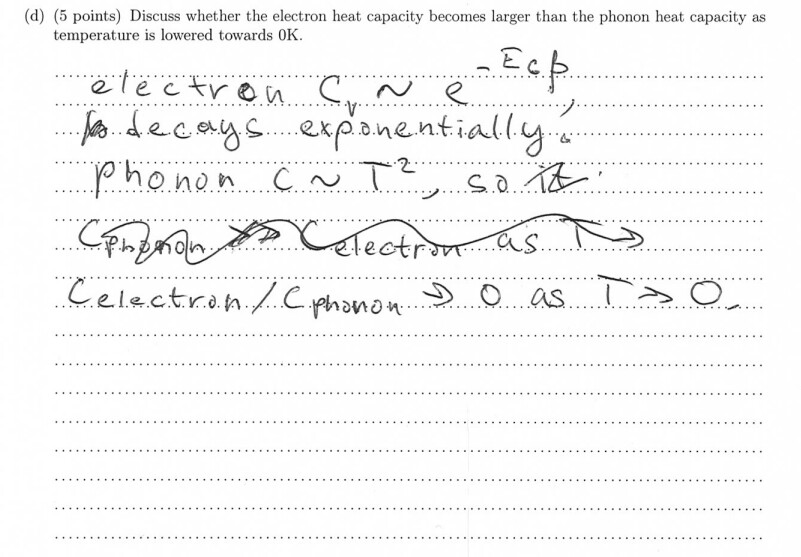 (d) (5 points) Discuss whether the electron heat capacity becomes larger than the phonon heat capacity as
temperature is lowered towards 0K.
electron Cv ~ e^-Ecβ,
decays exponentially.
phonon C ~ T², so it
Cphonon >> Celectron as T →
Celectron/Cphonon → 0 as T → 0.